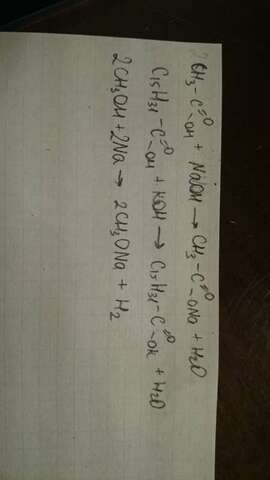 2CH₃-C=O-OH + NaOH → CH₃-C=O-ONa + H₂O
C₁₅H₃₁-C=O-OH + KOH → C₁₅H₃₁-C=O-OK + H₂O
2CH₃OH + 2Na → 2CH₃ONa + H₂